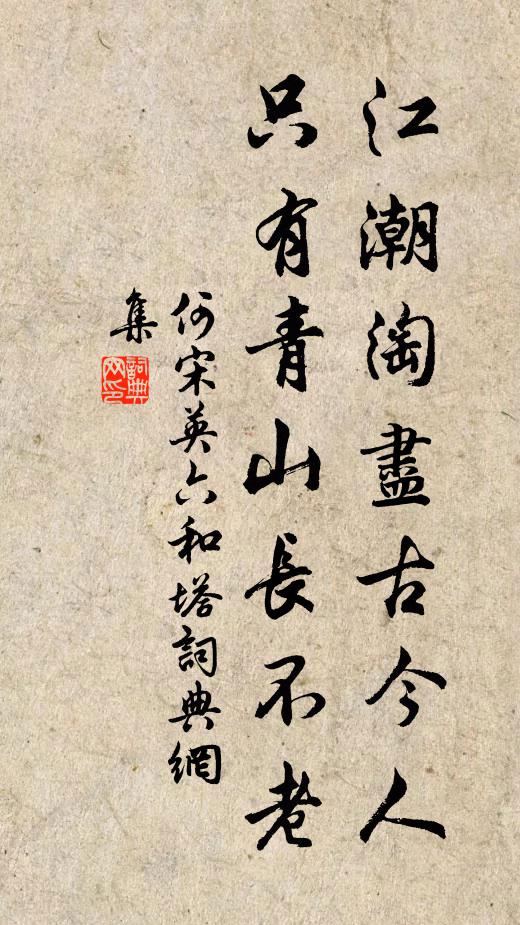 江潮淘盡古今人
只有青山長不老
何宋英六和塔詞典網
集
詞典網印